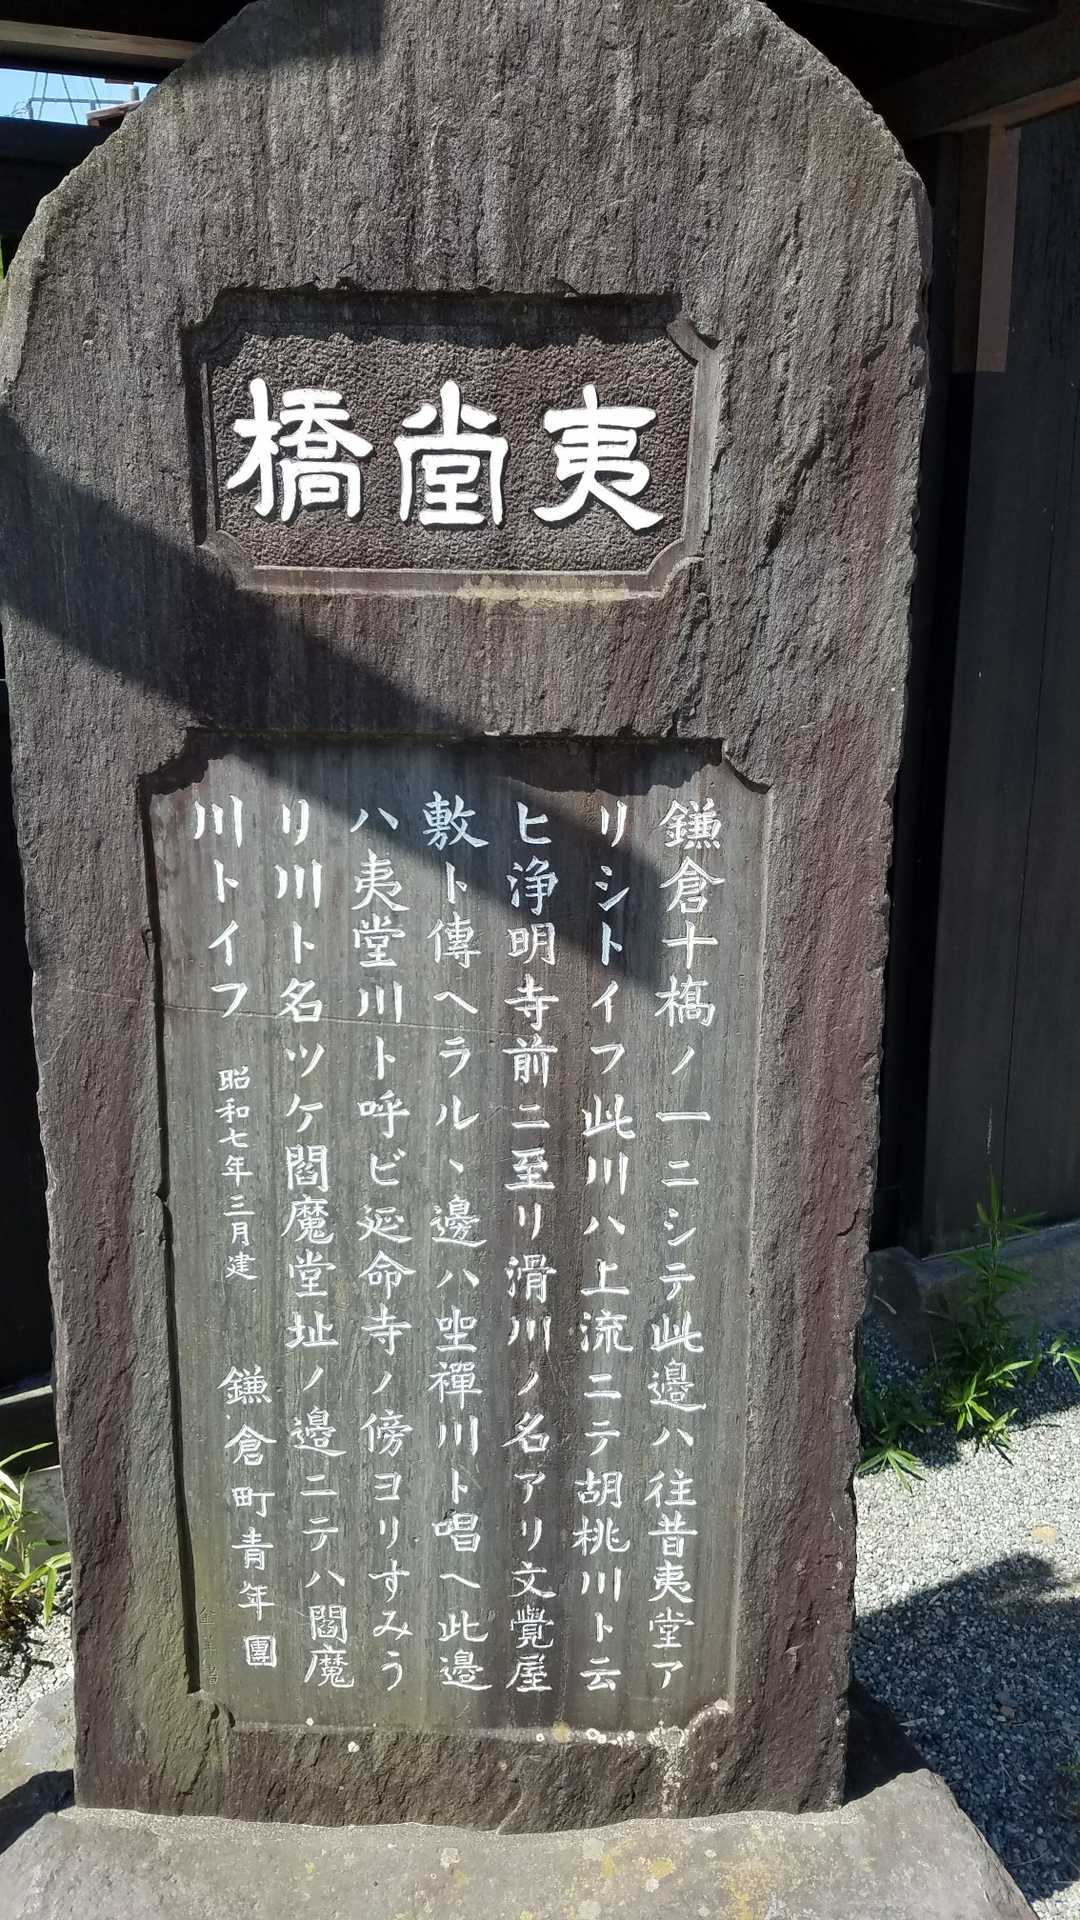 夷堂橋
鎌倉十橋ノ一ニシテ此邉ハ往昔夷堂ア
リシトイフ此川ハ上流ニテ胡桃川ト云
ヒ浄明寺前ニ至リ滑川ノ名アリ文覺屋
敷ト傳ヘラルヽ邊ハ坐禪川ト唱ヘ此邊
ハ夷堂川ト呼ビ延命寺ノ傍ヨリすみう
リ川ト名ツケ閻魔堂址ノ邉ニテハ閻魔
川トイフ 昭和七年三月建 鎌倉町青年團